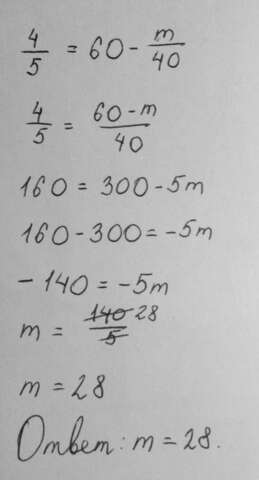 4/5 = 60 - m/40
4/5 = (60 - m)/40
160 = 300 - 5m
160 - 300 = -5m
- 140 = -5m
m = 140/5 28
m = 28
Ответ: m = 28.